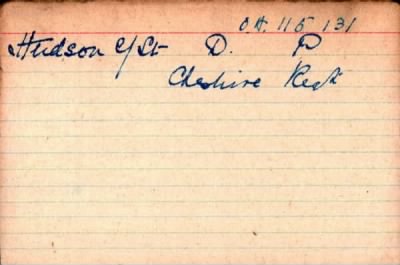 OH. 115 131
Hudson C/St D. P
Cheshire Regt